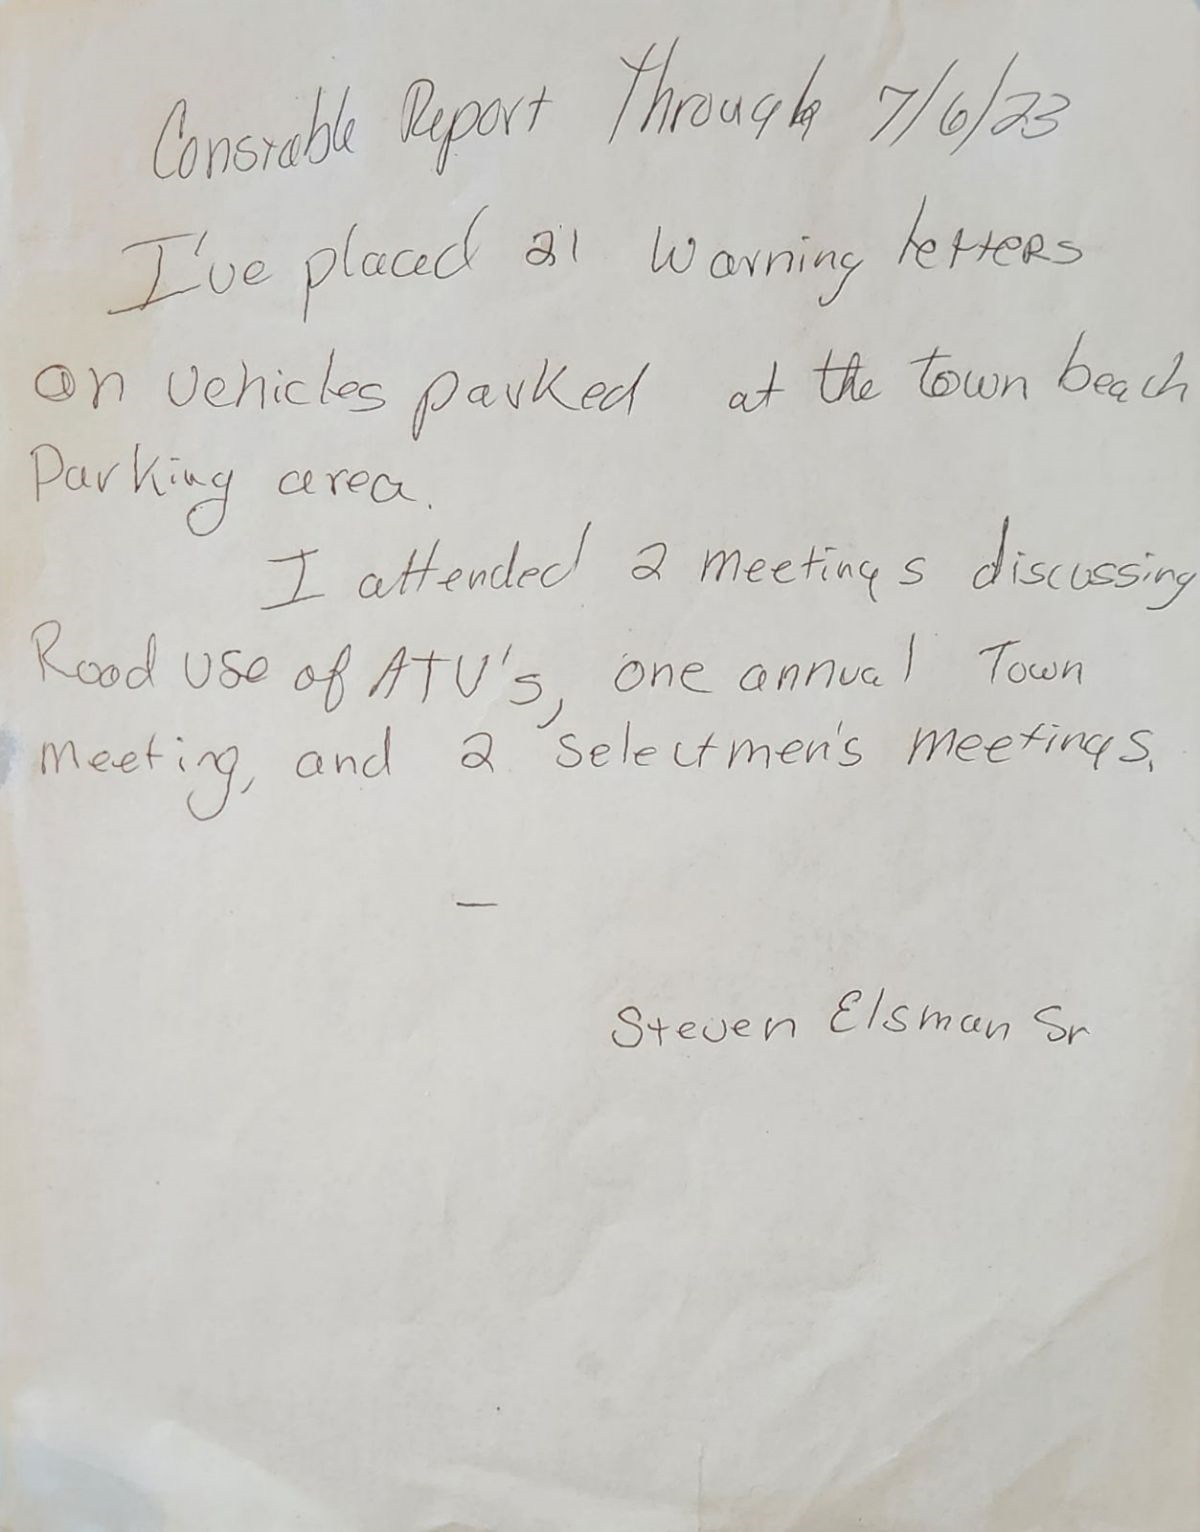 Constable Report Through 7/6/23
I've placed 21 Warning letters
on vehicles parked at the town beach
Parking area.
I attended 2 meetings discussing
Road use of ATV's, one annual Town
meeting, and 2 selectmen's meetings.
—
Steven Elsman Sr